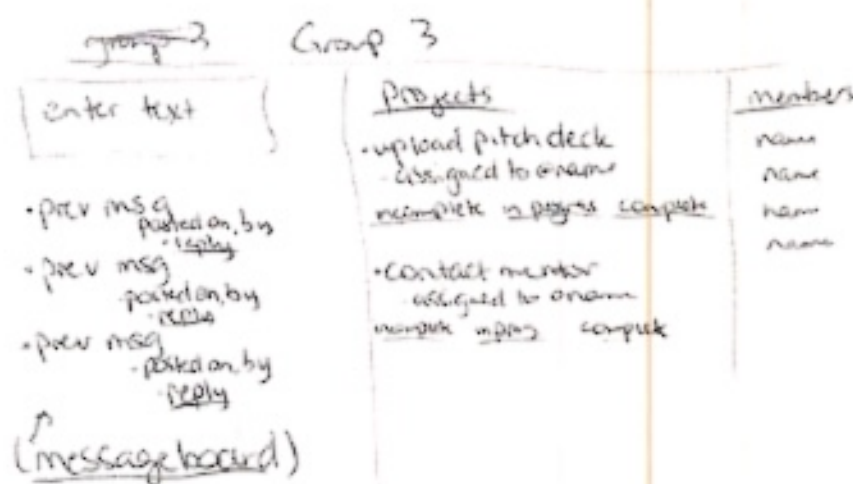 Group 3
enter text
• prev msg
posted on, by
- reply
• prev msg
- posted on, by
- reply
• prev msg
- posted on, by
- reply
(messageboard)
Projects
• upload pitch deck
- assigned to @name
incomplete in progress complete
• contact mentor
- assigned to @name
incomplete complete
members
name
name
name
name